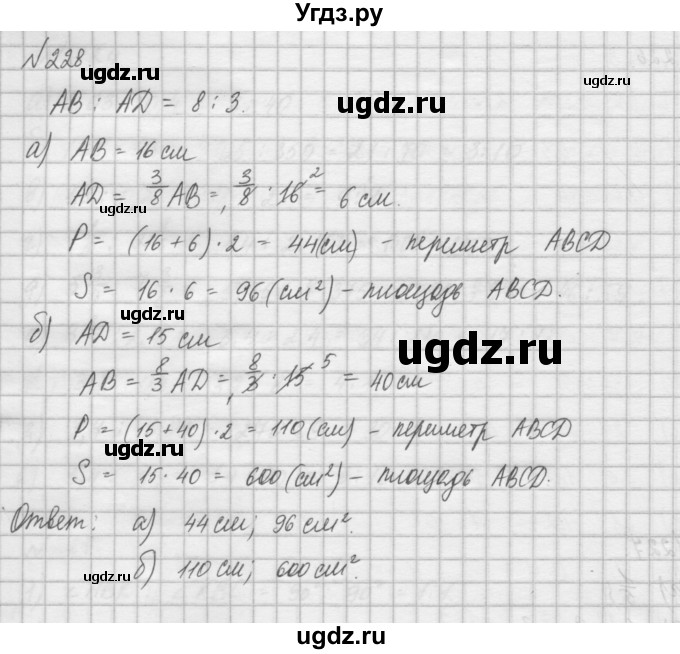 Угдз.ру
№228
AB : AD = 8 : 3.
а) AB = 16 см
AD = 3/8 AB = 3/8 · 16 ² = 6 см.
P = (16 + 6) · 2 = 44 (см) - периметр ABCD
S = 16 · 6 = 96 (см²) - площадь ABCD.
б) AD = 15 см
AB = 8/3 AD = 8/3 · 15 ⁵ = 40 см
P = (15 + 40) · 2 = 110 (см) - периметр ABCD
S = 15 · 40 = 600 (см²) - площадь ABCD.
Ответ: а) 44 см; 96 см².
б) 110 см; 600 см².
ugdz.ru
ugdz.ru
ugdz.ru
ugdz.ru
ugdz.ru
ugdz.ru
ugdz.ru
ugdz.ru
ugdz.ru
ugdz.ru